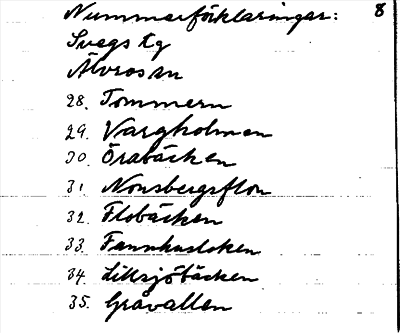 Nummerförklaringar: 8
Svegs tg
Älvros sn
28. Tommern
29. Vargholmen
30. Örabäcken
31. Nonsbergsflon
32. Flobäcken
33. Fannhusloken
34. Lillsjöbäcken
35. Gråvallen